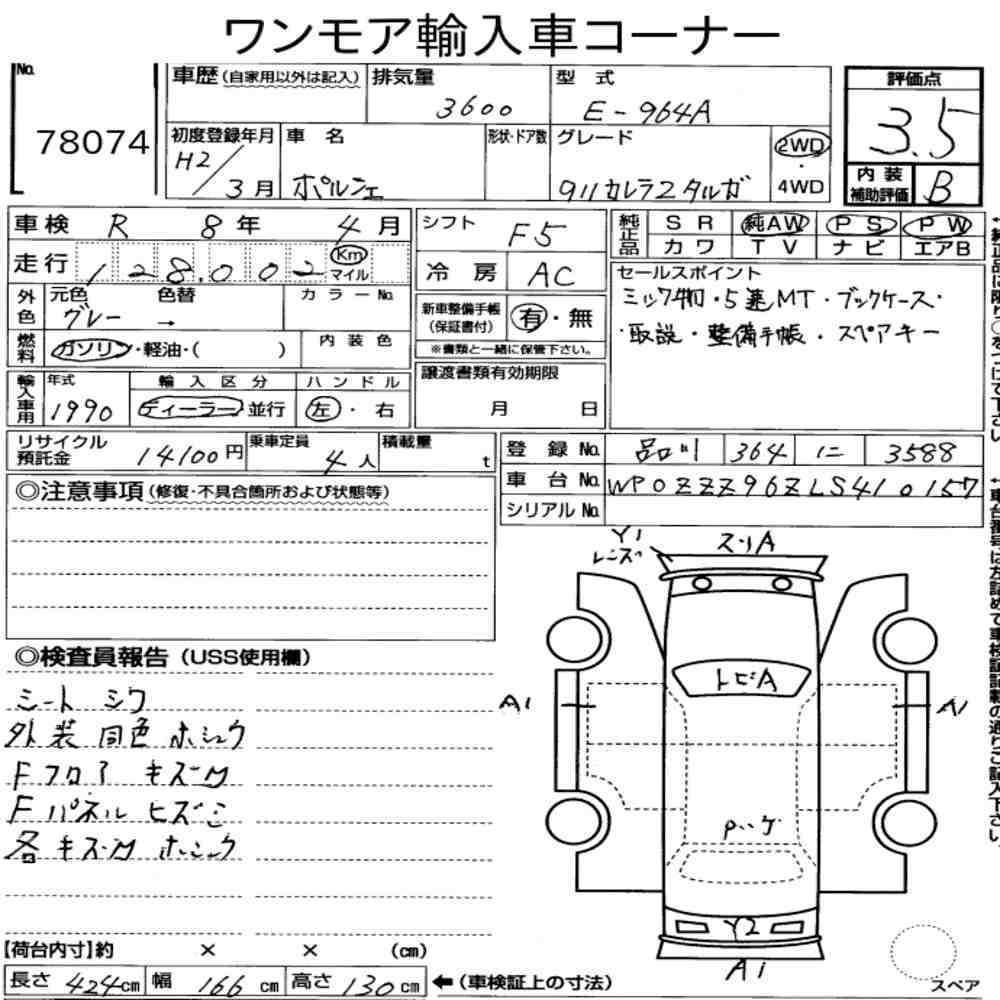 ワンモア輸入車コーナー
No.
78074
車歴(自家用以外は記入)
排気量
3600
型 式
E-964A
評価点
3.5
初度登録年月
H2/3月
車 名
ポルシェ
形状・ドア数
グレード
911カレラ2タルガ
2WD
・
4WD
内 装
補助評価
B
車検 R 8年 4月
走行 128,002 Km
マイル
シフト F5
冷 房 AC
純正品
SR 純AW PS PW
カワ TV ナビ エアB
外色
元色 色替
グレー →
カラーNo.
内 装 色
燃料
ガソリン・軽油・( )
新車整備手帳
(保証書付)
有・無
※書類と一緒に保管下さい。
セールスポイント
ミツワ物・5速MT・ブックケース・
・取説・整備手帳・スペアキー
輸入車用
年式
1990
輸 入 区 分
ディーラー 並行
ハ ン ド ル
左・右
譲渡書類有効期限
月 日
リサイクル
預託金
14100円
乗車定員
4人
積載量
t
登 録 No. 品川 364 ニ 3588
車 台 No. WP0ZZZ96ZLS410157
シリアルNo.
◎注意事項(修復・不具合箇所および状態等)
◎検査員報告(USS使用欄)
シート シワ
外装 同色 ホシュウ
Fフロア キズM
Fパネル ヒズミ
各キズM ホシュウ
Y1
レンズ
スリA
トビA
A1
A1
Pハゲ
Y2
A1
スペア
【荷台内寸】約 × × (cm)
長さ 424cm 幅 166cm 高さ 130cm
←(車検証上の寸法)